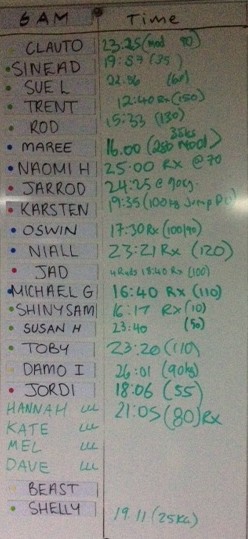 6 AM Time
CLAUTO 23:25 (mod 80)
SINEAD 19:57 (35)
SUE L 22:36 (60)
TRENT 12:40 Rx (150)
ROD 15:33 (130)
35kg
MAREE 16.00 (250 mod)
NAOMI H 25:00 Rx @ 70
JARROD 24:25 @ 90kg
KARSTEN 19:35 (100kg Jump PU)
OSWIN 17:30 Rx (100/90)
NIALL 23:21 Rx (120)
JAD 4 Rds 18:40 Rx (100)
MICHAEL G 16:40 Rx (110)
SHINYSAM 16:17 Rx (10)
SUSAN H 23:40 (50)
TOBY 23:20 (110)
DAMO I 26:01 (90kg)
JORDI 18:06 (55)
HANNAH 21:05 (80) Rx
KATE
MEL
DAVE
BEAST
SHELLY 19.11 (25kg)